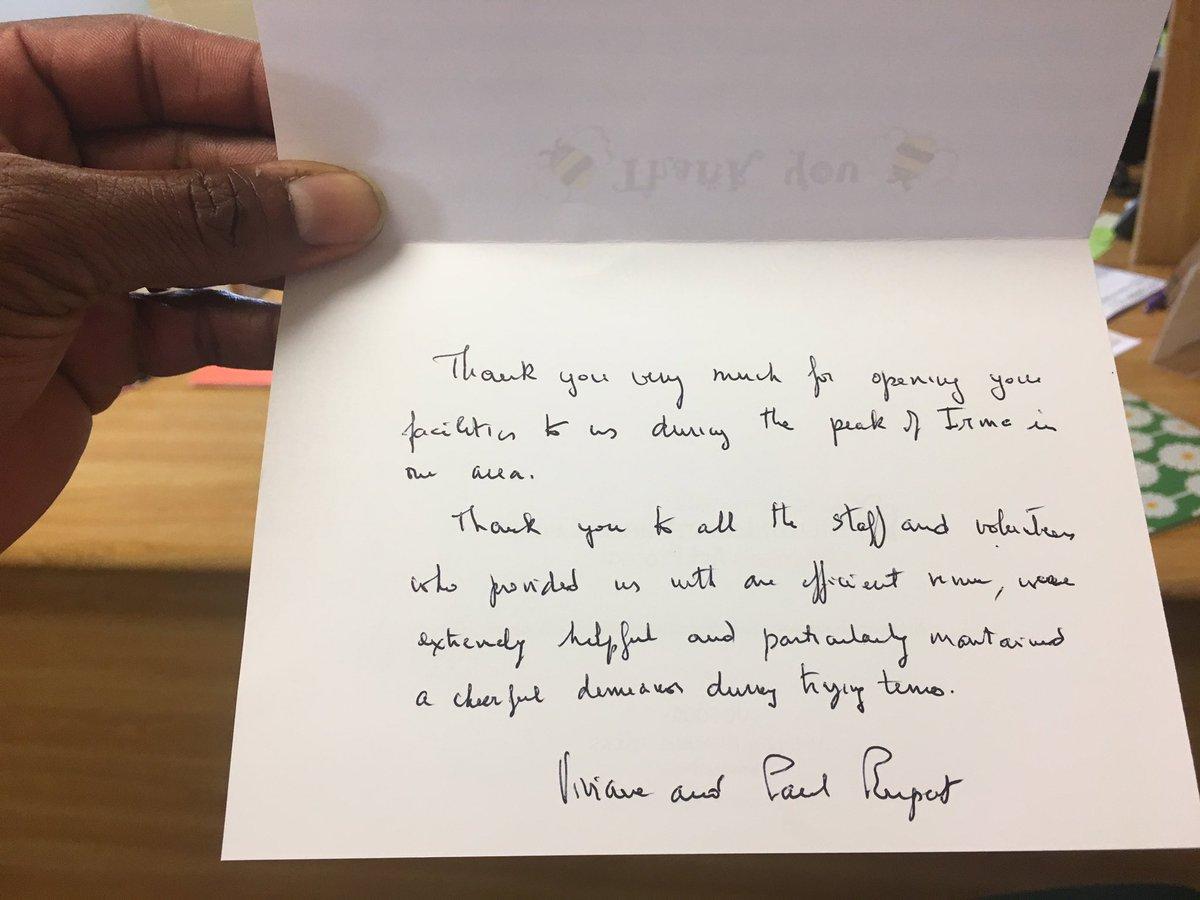 Thank you
Thank you very much for opening your
facilities to us during the peak of Irma in
our area.
Thank you to all the staff and volunteers
who provided us with an efficient venue, were
extremely helpful and particularly maintained
a cheerful demeanor during trying times.
Viviane and Paul Rupert